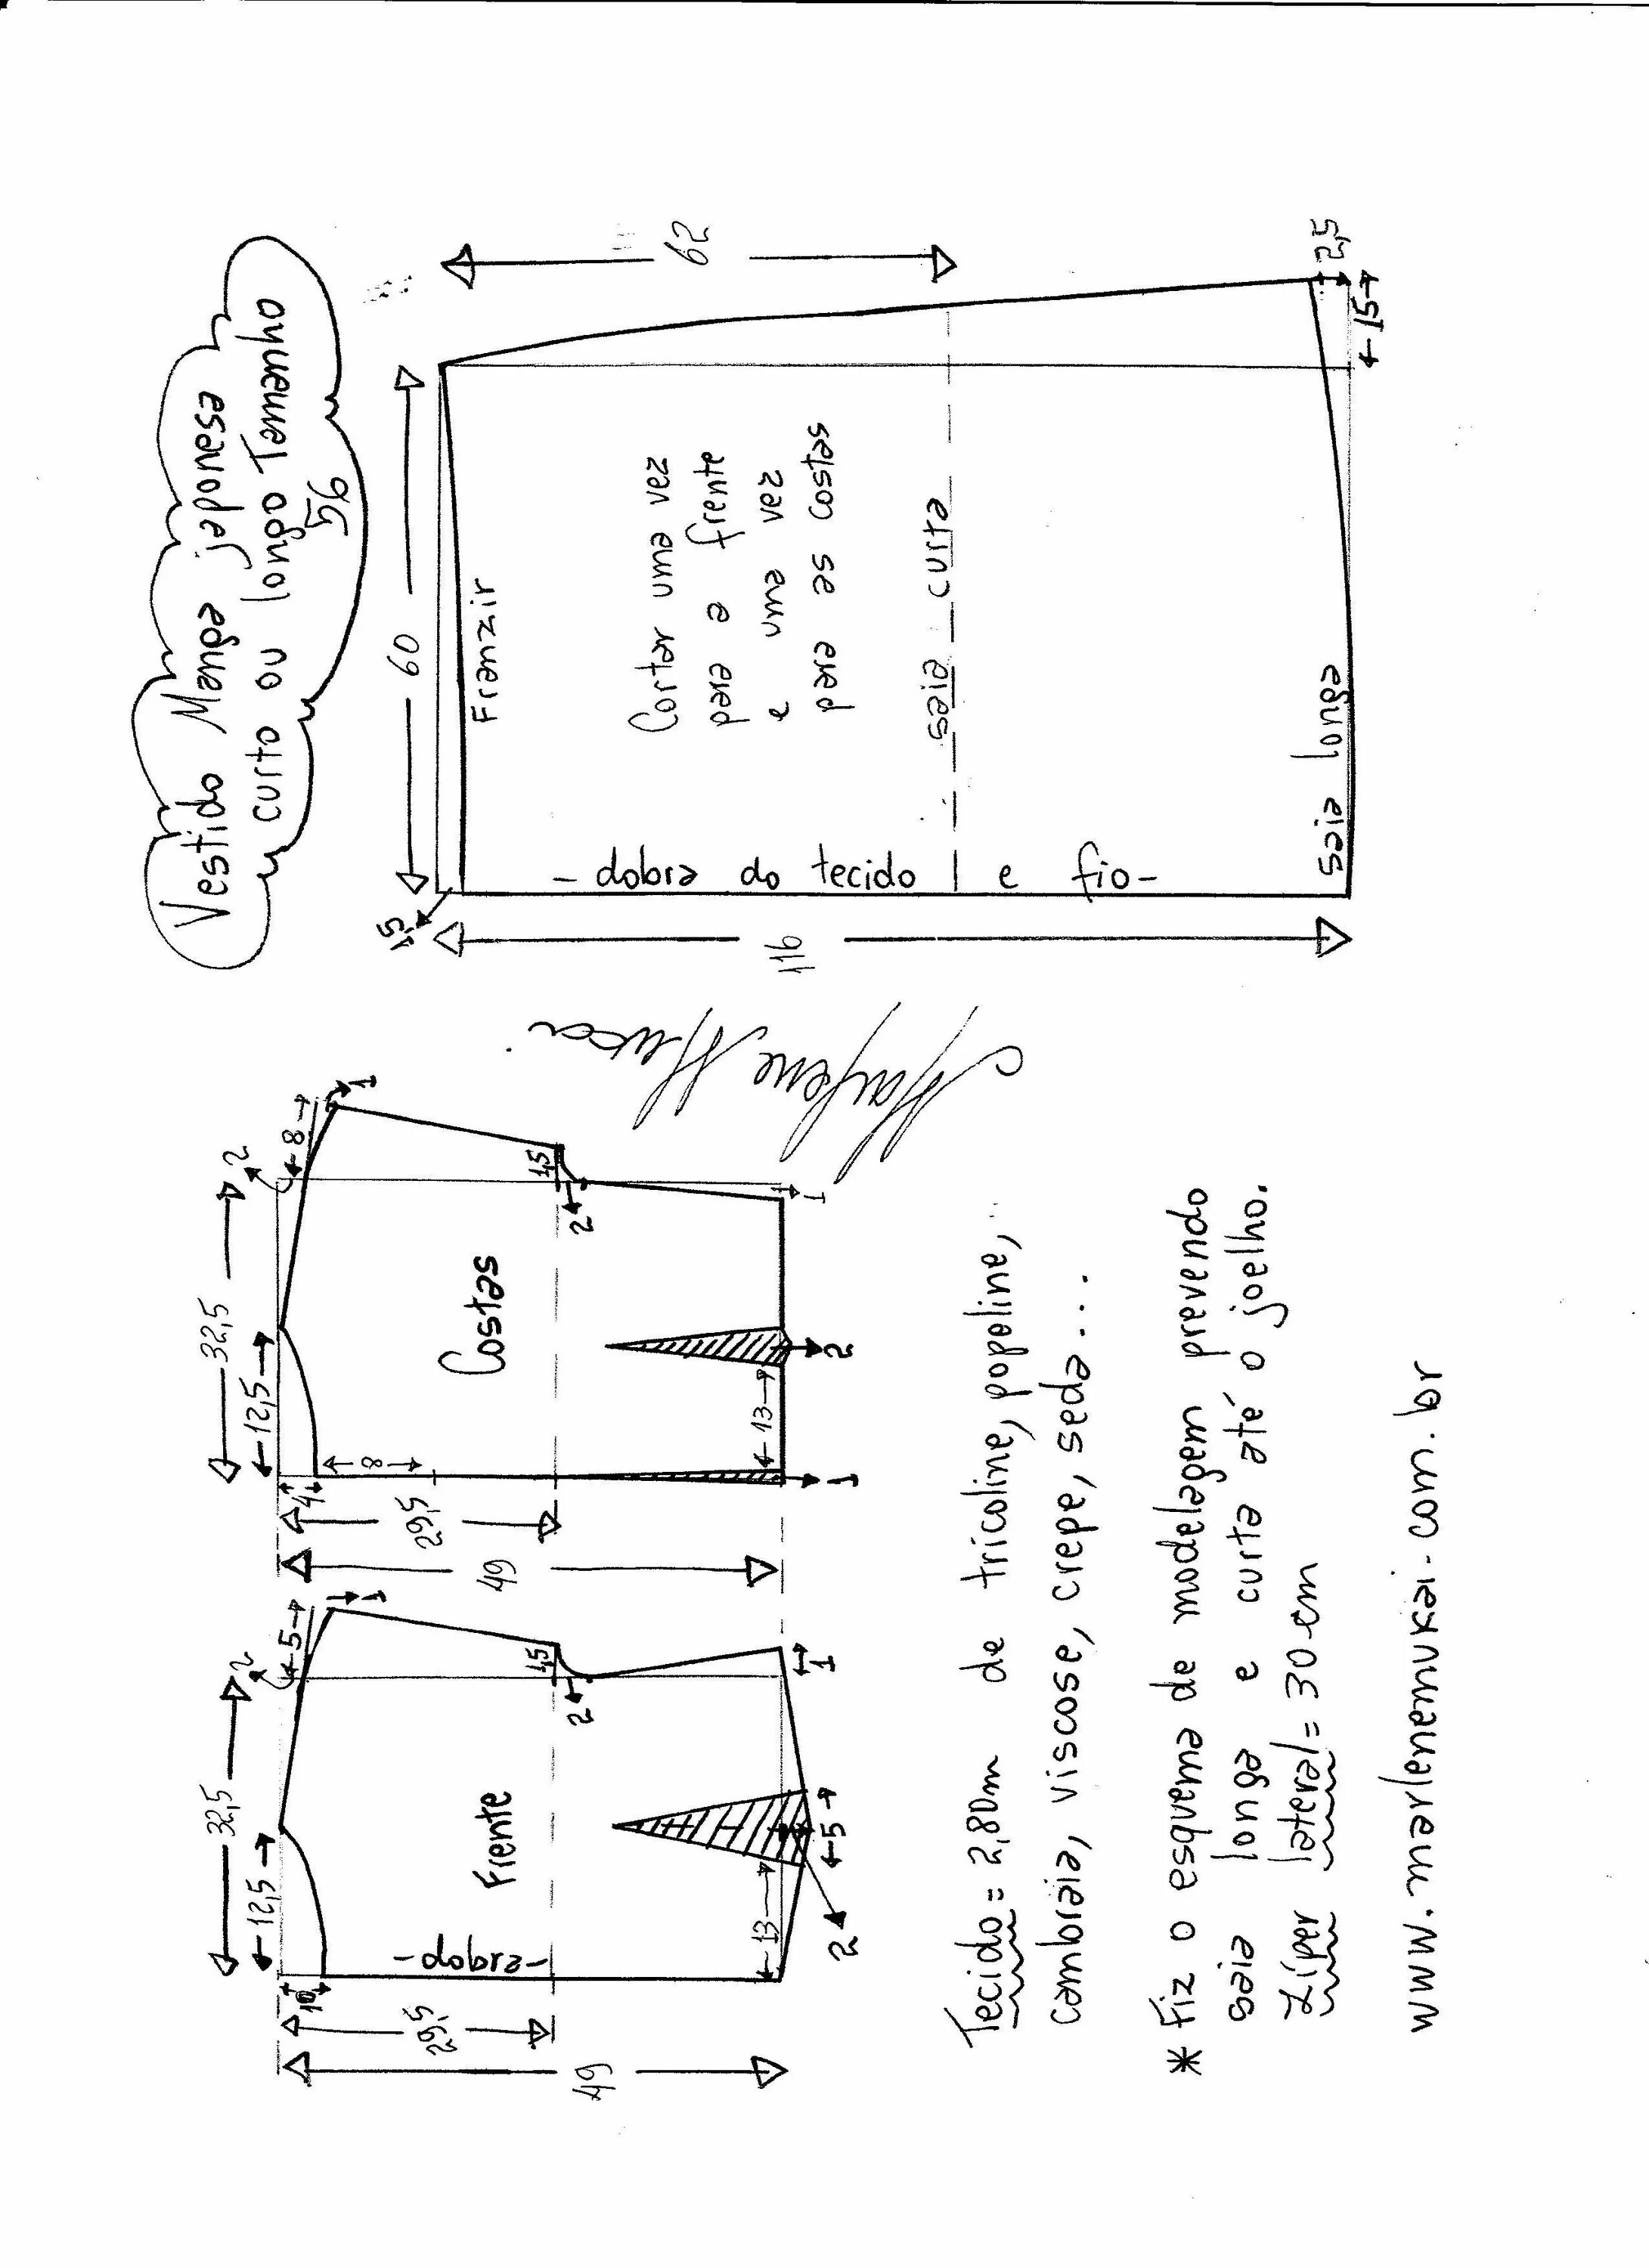 Vestido Manga japonesa
curto ou longo Tamanho
56
32,5
12,5
2
5
1
10
29,5
49
- dobra -
Frente
1,5
2
13
5
2
1
32,5
12,5
2
8
1
4
8
29,5
49
Costas
1,5
2
13
2
1
1
60
1,5
Franzir
62
116
Cortar uma vez
para a frente
e uma vez
para as costas
saia curta
- dobra do tecido e fio -
saia longa
2,5
15
Marlene Mukai
Tecido = 2,80m de tricoline, popeline,
cambraia, viscose, crepe, seda....
* Fiz o esquema de modelagem prevendo
saia longa e curta até o joelho.
Zíper lateral = 30 cm
www.marlenemukai.com.br